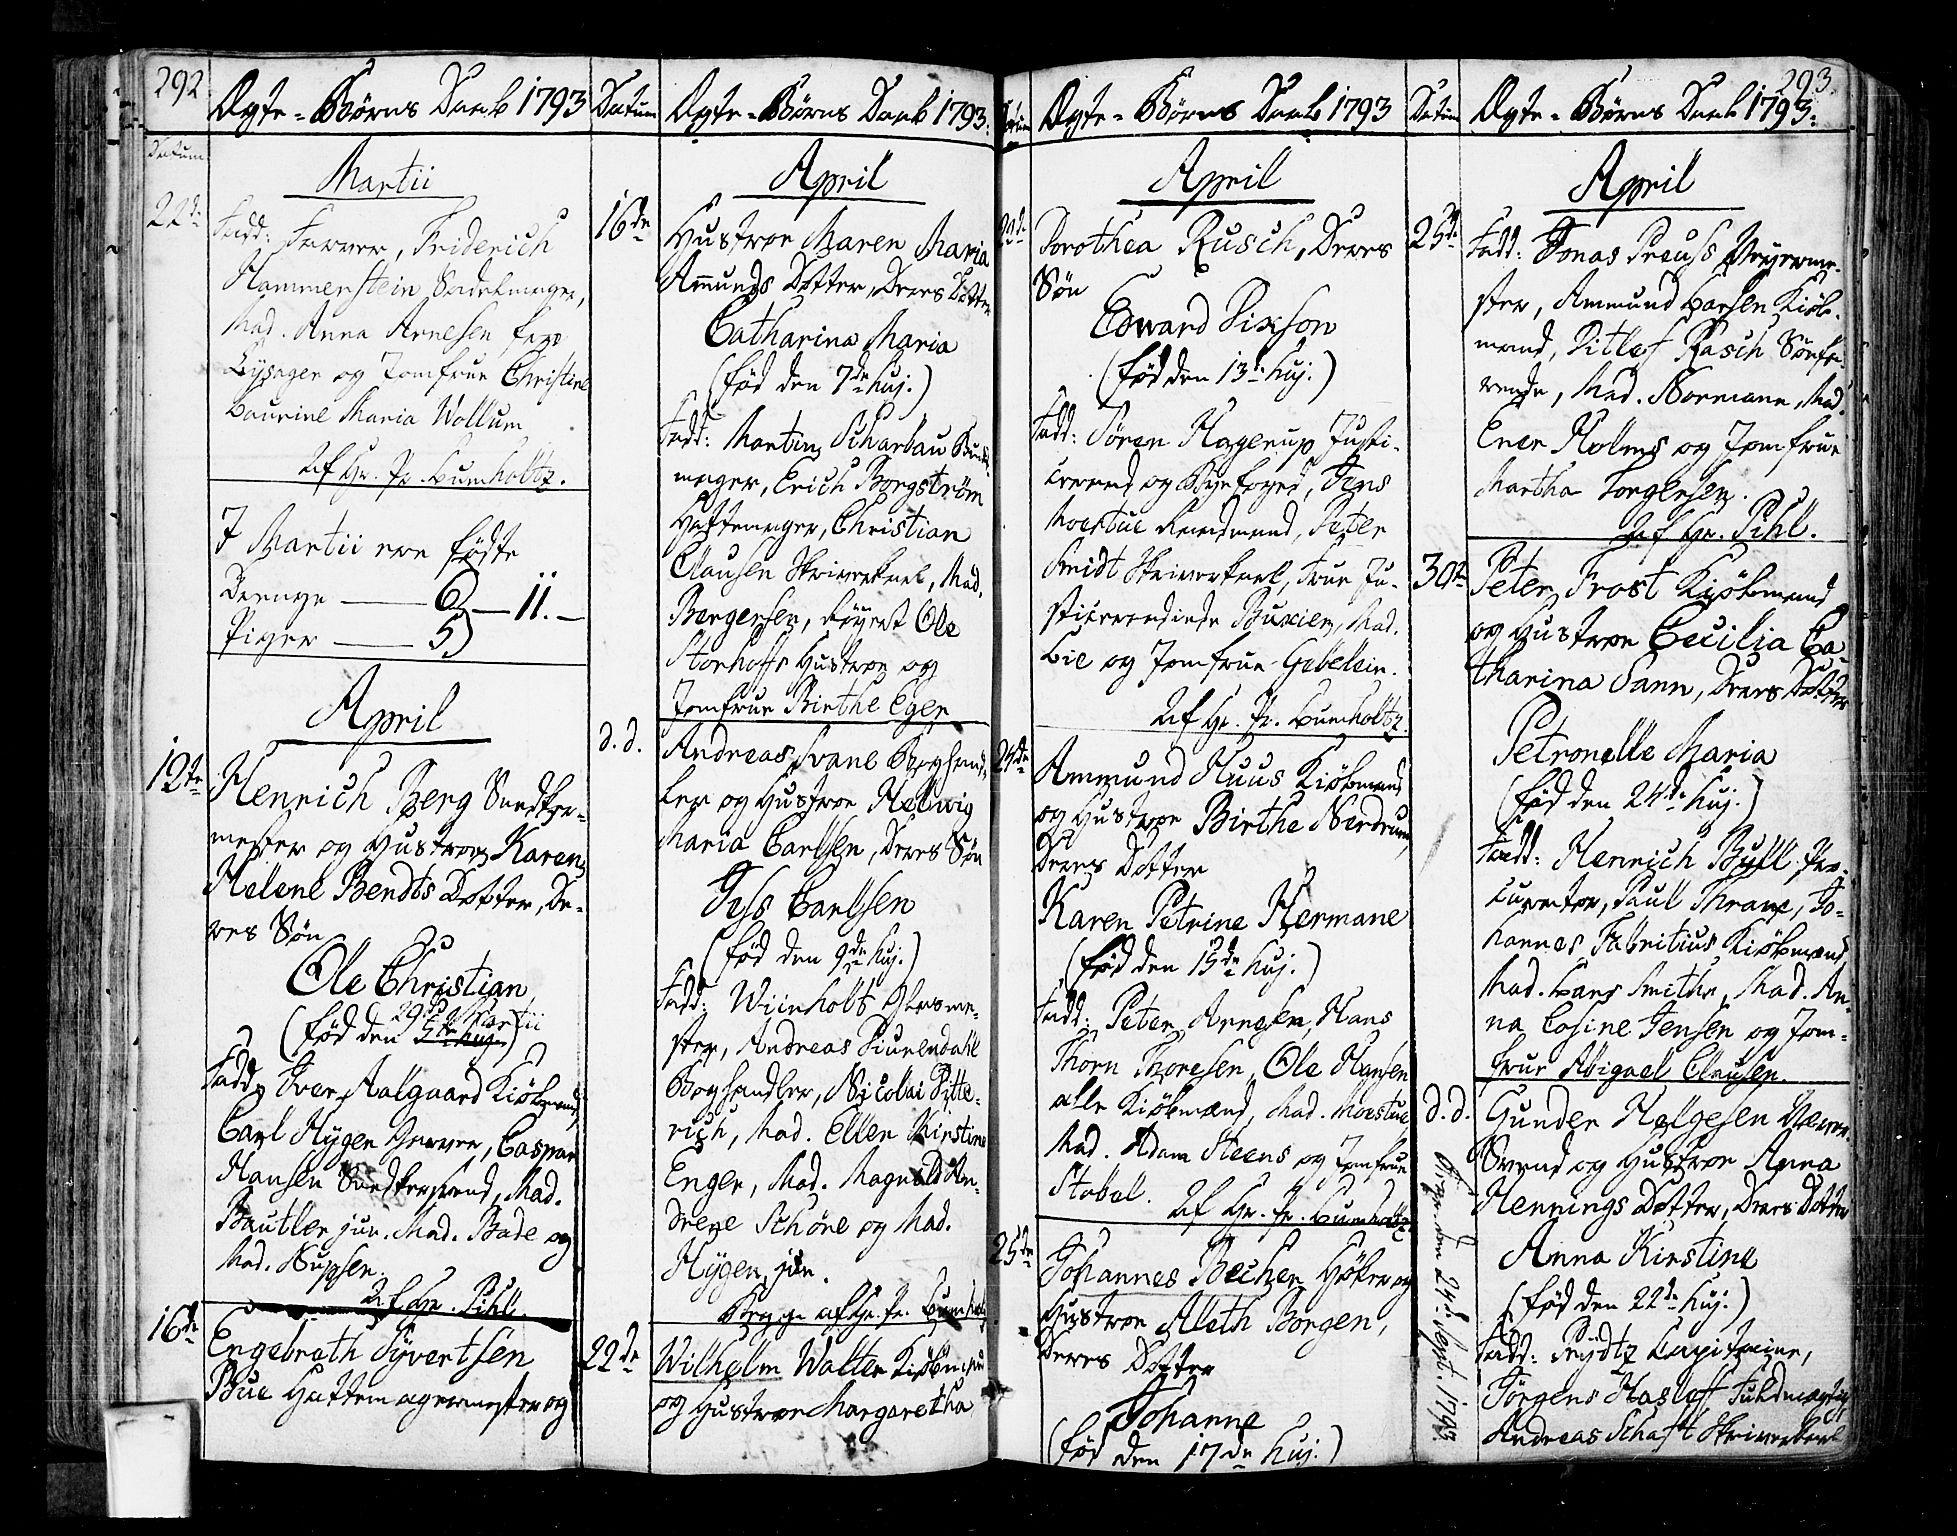 292
Ægte-Børns Daab 1793
Datum
Martii
22de
Fadd: Farver, Friderich
Hammerstein Sadelmager,
Mad. Anna Arnesen,
Lysager og Jomfrue Christine
Laurine Maria Wollum
Af Hr. Pr. Lumholtz.
I Martii ere fødte
Drenge — 6
Piger — 5
— 11. —
April
12te
Henrich Berg Snedker-
mester og Hustroe Karen
Helene Bendts Dotter, De-
res Søn
Ole Christian
29de Martii
(fød den 5te hujus)
Fadd: Iver Aalgaard Kiøbmand,
Carl Hygen Farver, Caspar
Hansen Snedkersvend, Mad.
Bautler jun. Mad. Bade og
Mad. Nupsen.
Af Hr. Pihl.
16de
Engebreth Syvertsen
Bue Hattemagermester og
Datum
Ægte-Børns Daab 1793.
April
16de
Hustroe Maren Maria
Amunds Dotter, Deres Dotter
Catharina Maria
(fød den 7de huj.)
Fadd: Martin Scharbau
mager, Erich Borgstrøm
Hattemager, Christian
Clausen Skriverkarl, Mad.
Borgersen, Ole
Storhoffs Hustroe og
Jomfrue Birthe Eger
d. d.
Andreas Svane Boghand-
ler og Hustroe Helwig
Maria Carlsen, Deres Søn
Jess Carlsen
(fød den 9de huj.)
Fadd: Wiinholt Glasme-
ster, Andreas Diurendahl
Boghandler, Nicolai Ditte-
rich, Mad. Ellen Kirstine
Enger, Mad. Magnild An-
drea Schöne og Mad.
Hygen, jun.
Begge af Hr. Pr. Lumholtz
22de
Wilhelm Walter Kiøbmand
og Hustroe Margaretha
Datum
Ægte-Børns Daab 1793
April
22de
Dorothea Rusch, Deres
Søn
Edward Dixson
(fød den 13de huj.)
Fadd: Søren Hagerup Justi-
tzraad og Byefoged, Jens
Moestue Raadmand, Peter
Smidt Skriverkarl, Frue Ju-
stitzraadinde Buxier, Mad.
Lie og Jomfrue Gebelein.
Af Hr. Pr. Lumholtz.
Ammund Huus Kiøbmand
og Hustroe Birthe Nerdrum
Deres Dotter
Karen Petrine Hermane
(fød den 15de huj.)
Fadd: Peter Arnesen, Hans
Thorn Thoresen, Ole Hansen
alle Kiøbmænd, Mad. Moestue
Mad. Adam Steens og Jomfrue
Stabel.
Af Hr. Pr. Lumholtz
25de
Johannes Becher Høker og
Hustroe Aleth Borgen,
Deres Dotter
Johanne
(fød den 17de huj.)
293.
Datum
Ægte-Børns Daab 1793.
April
25de
Fadd: Jonas Preuss Veyerme-
ster, Ammund Larsen Kiøb-
mand, Ditlef Rasch Søefa-
rende, Mad. Normann, Mad.
Ener Holms og Jomfrue
Martha Torgersen.
Af Hr. Pihl.
30te
Peter Frost Kiøbmand
og Hustroe Cecilia Ca-
tharina Sann, Deres Dotter
Petronelle Maria
(fød den 24de huj.)
Fadd: Henrich Bull Pro-
curator, Paul Thrane, Jo-
hannes Fabritius Kiøbmænd,
Mad. Lars Smiths, Mad. An-
na Cosine Jensen og Jom-
frue Abigael Clausen.
d. d.
Gunder Helgesen
Svend og Hustroe Anna
Hennings Dotter, Deres Dotter
Anna Kirstine
(fød den 22de huj.)
Fadd: Prydtz Capitaine,
Jørgens Hasloff Fuldmægtig
Andreas Schaft Skriverkarl
den 24de Sept. 1793.